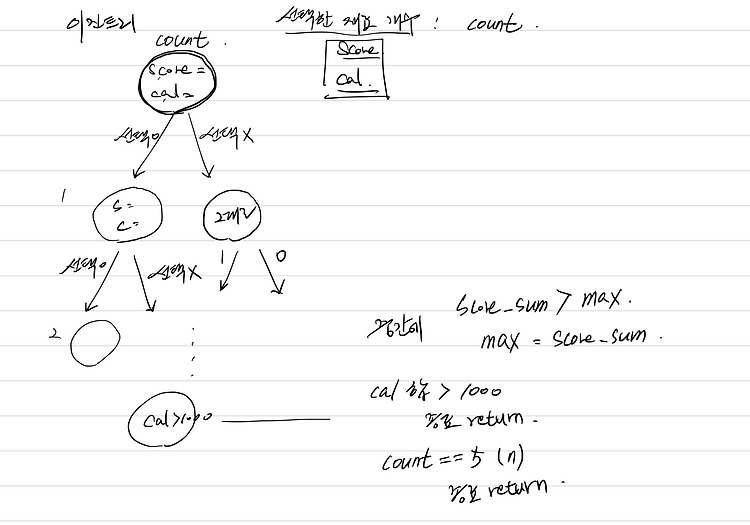 이진트리
선택한 재료 개수 : count.
count.
Score
cal.
score =
cal =
선택o
선택X
1
s =
c =
그대로
선택o
선택X
1
0
2
cal>1000
중간에
score_sum > max.
max = score_sum.
cal 합 > 1000
종료 return.
count == 5 (n)
종료 return.